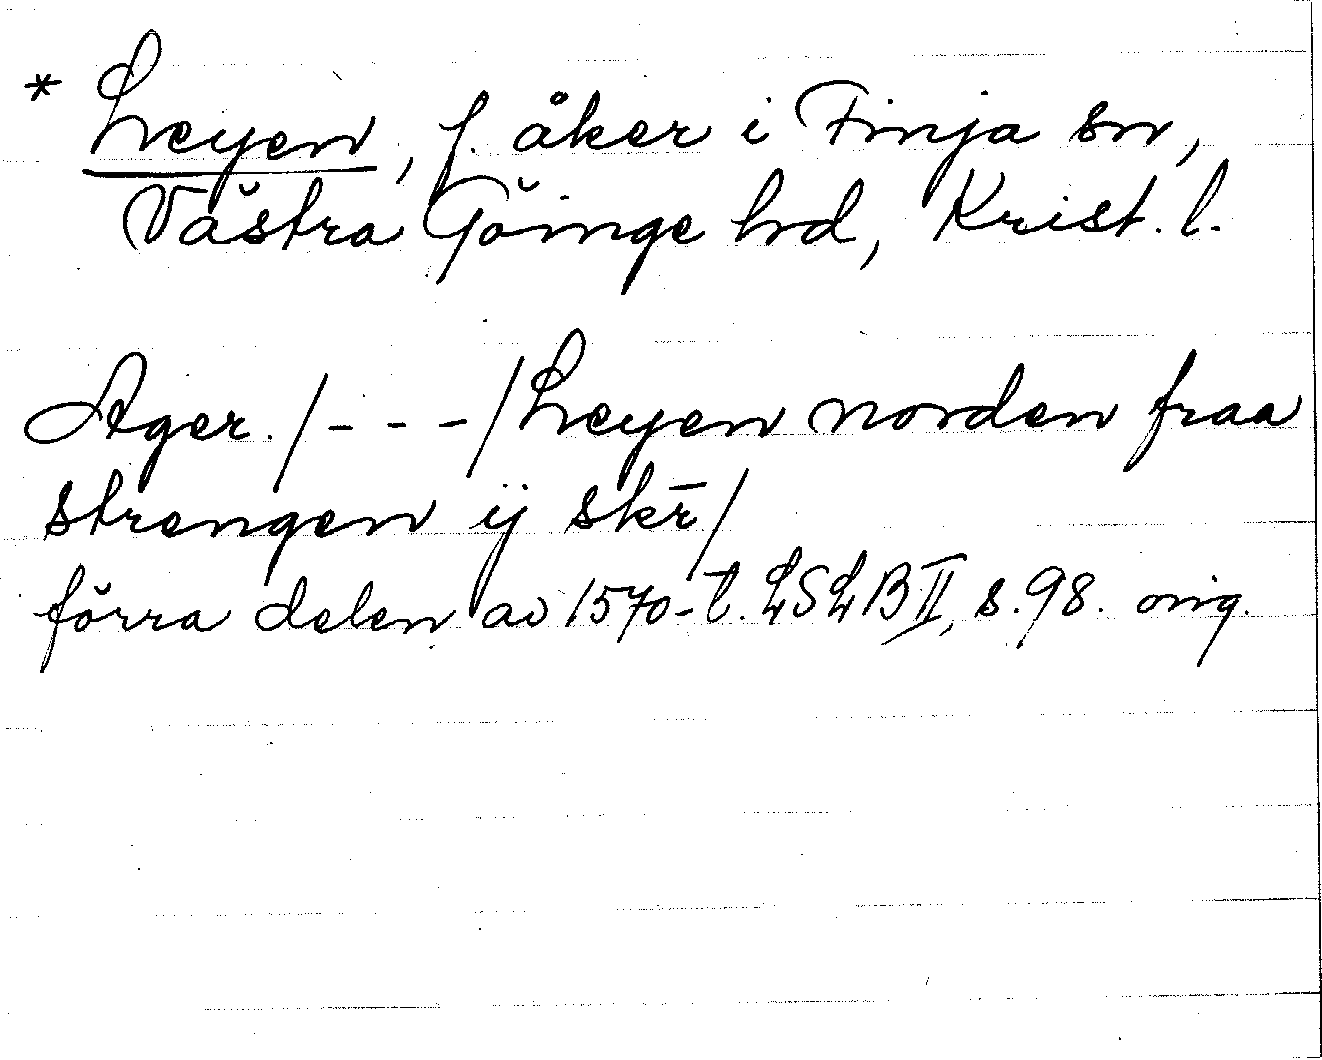 * Leyen, f. åker i Finja sn,
Västra Göinge hd, Krist. l.
Ager. /- - -/ Leyen norden fraa
strengen ij skr̄/
förra delen av 1570-t. LSLB II, s. 98. orig.